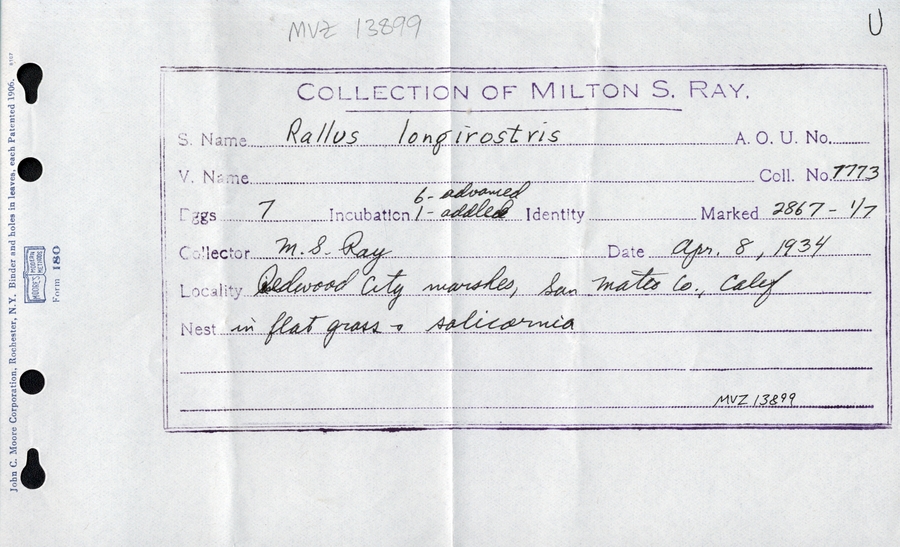 MVZ 13899
U
COLLECTION OF MILTON S. RAY.
S. Name Rallus longirostris A. O. U. No.
V. Name Coll. No. 7773
Eggs 7 Incubation 6- advanced 1- addled Identity Marked 2867 - 1/7
Collector M. S. Ray Date Apr. 8, 1934
Locality Redwood City marshes, San Mateo Co., Calif
Nest in flat grass & salicornia
MVZ 13899
John C. Moore Corporation, Rochester, N.Y. Binder and holes in leaves, each Patented 1906.
MOORE'S MODERN METHODS
Form 180